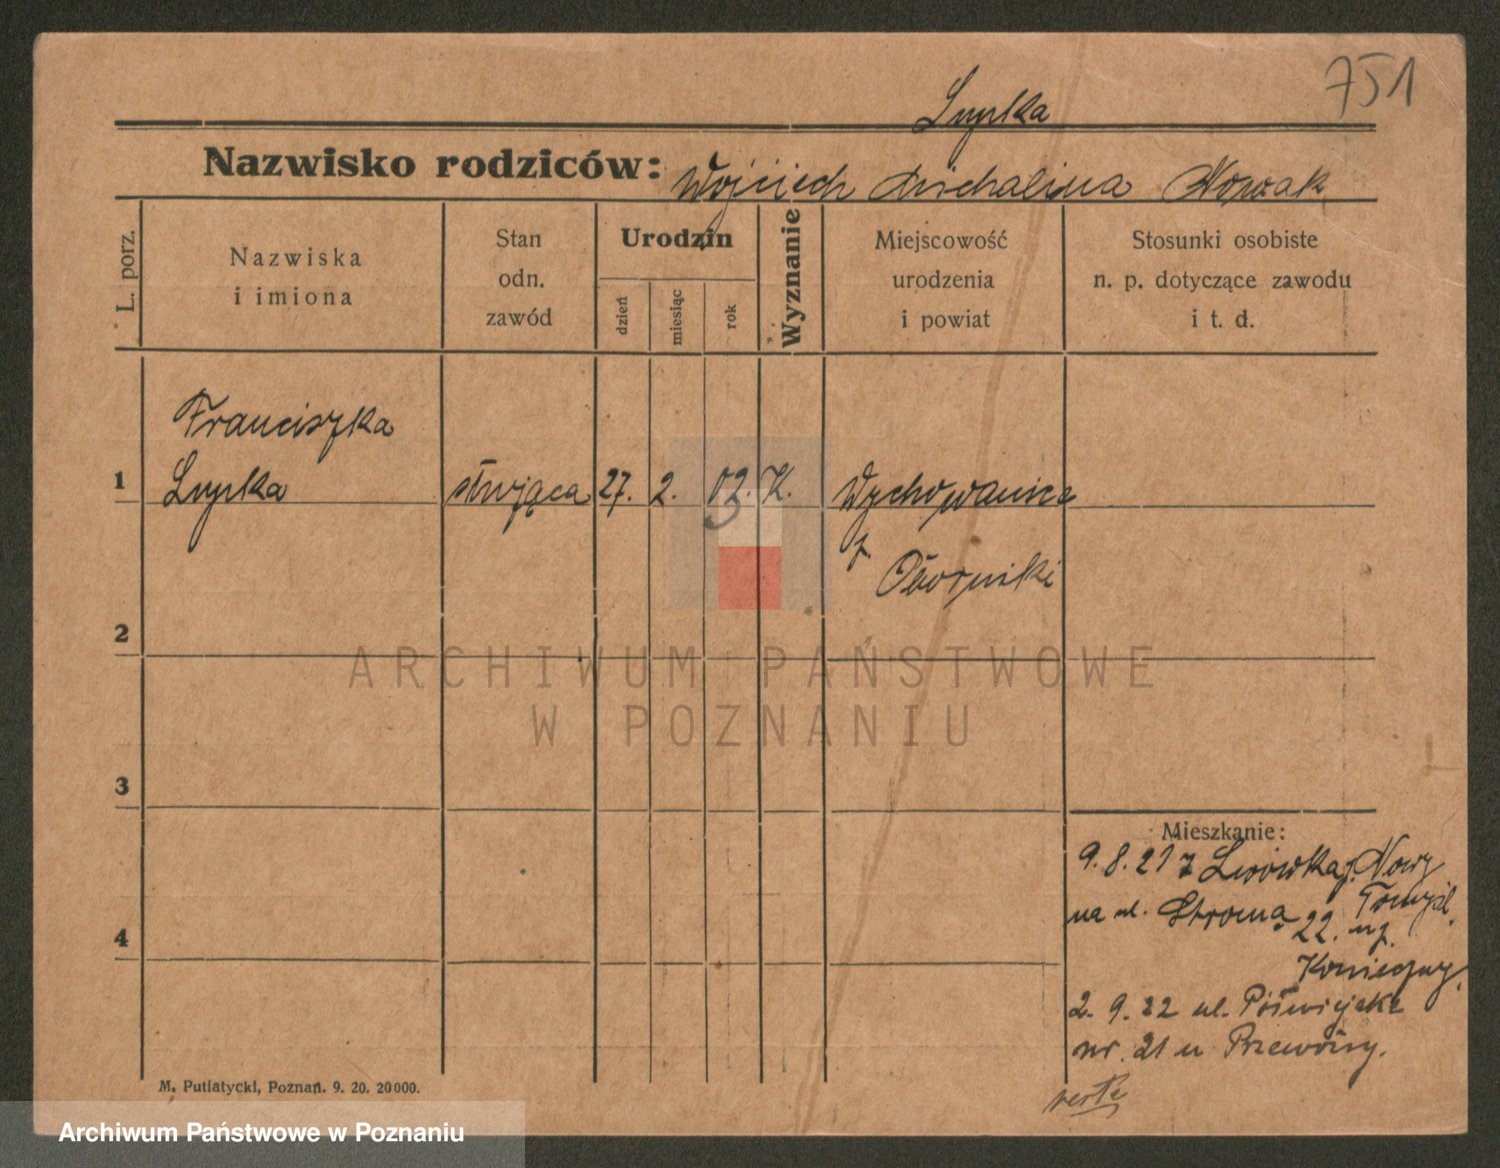 751
Lupka
Nazwisko rodziców: Wojciech Michalina Nowak
L. porz.
Nazwiska
i imiona
Stan
odn.
zawód
Urodzin
dzień
miesiąc
rok
Wyznanie
Miejscowość
urodzenia
i powiat
Stosunki osobiste
n. p. dotyczące zawodu
i t. d.
Franciszka
1 Lupka służąca 27. 2. 02. K. Wychowaniec
p. Oborniki
2
ARCHIWUM PAŃSTWOWE
W POZNANIU
3
Mieszkanie:
9. 8. 21 z Lwówka p. Nowy
na ul. Stromą 22. Tomyśl.
4
Konieczny.
2. 9. 22 ul.
nr. 21 u
verte
M. Putiatycki, Poznań. 9. 20. 20 000.
Archiwum Państwowe w Poznaniu